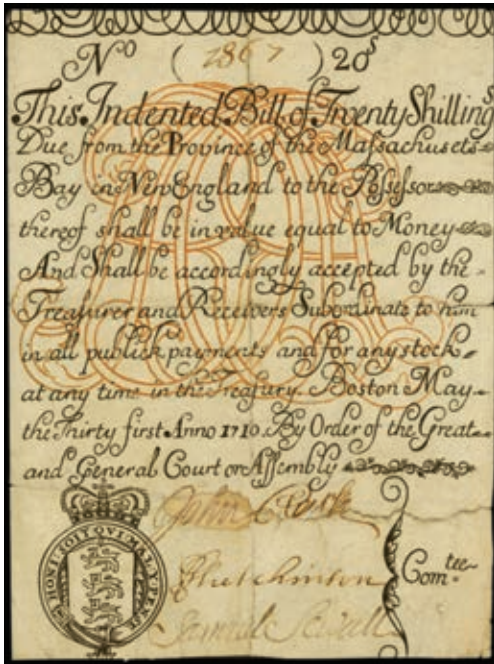 No (2867) 20s
This Indented Bill of Twenty Shillings
Due from the Province of the Massachusets
Bay in New England to the Possessor
thereof shall be in value equal to Money
And Shall be accordingly accepted by the
Treasurer and Receivers Subordinate to him
in all publick payments and for any stock
at any time in the Treasury. Boston May
the Thirty first Anno 1710. By Order of the Great
and General Court or Assembly
HONI SOIT QVI MAL Y PENSE
John Clark
Hutchinson
Com.tee
Samuel Sewall